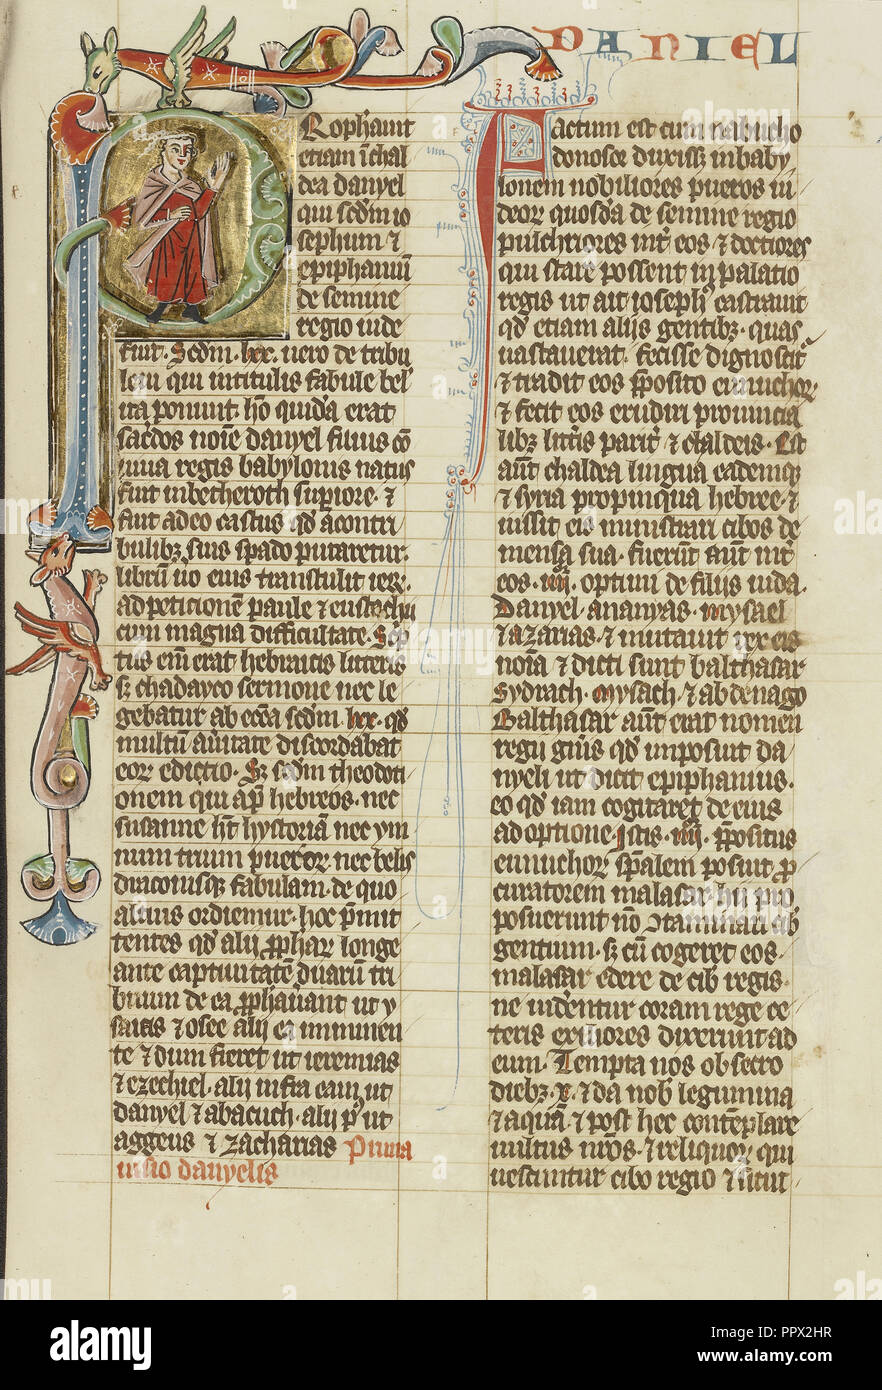 DANIEL
Prophauit
etiam ī chal
dea danyel
qui scdm io
sephum ⁊
epiphaniū
de semine
regio iude
fuit. Scdm. lxx. uero de tribu
leui qui intitulis fabule bel
ita ponunt. hō quidā erat
sacdos noīe danyel filius cō
uiua regis babylonis natus
fuit inbetheroth supiore. ⁊
fuit adeo castus qd acontri
bulibꝫ suis spado putaretur.
librū ūo eius transtulit ier̄.
ad peticionē paule ⁊ eustochii
cum magna difficultate. Scp
tus eīm erat hebraicis litteris
sꝫ chadayco sermone nec le
gebatur ab eccā scdm. lxx. qd
multū aūtate discordabat
eor edictio. Sꝫ scdm theodoti
onem qui ap hebreos. nec
susanne hāt hystoriā nec ym
num trium pueror nec belis
draconisqꝫ fabulam. de quo
alius ordiemur. hoc pmit
tentes qd alij pphar longe
ante captiuitatē duarū tri
buum de ea pphauant ut y
saias ⁊ osee alij ea imminen
te ⁊ dum fieret ut ieremias
⁊ ezechiel. alij infra eam ut
danyel ⁊ abacuch. alij p ut
aggeus ⁊ zacharias Prima
uisio danyelis
Factum est cum nabucho
donosor duxiss inbaby
lonem nobiliores pueros iu
deor quosdā de semine regio
pulchriores int eos ⁊ doctiores
qui stare possent in palatio
regis ut ait ioseph castrauit
qd etiam aliis gentibꝫ quas
uastauerat. fecisse dignoscit
⁊ tradit eos pposito eunuchor
⁊ fecit eos erudiri prouincia
libꝫ littis parit ⁊ chaldeis. Est
aūt chaldea lingua eademqꝫ
⁊ syria propinqua hebree. ⁊
iussit eis ministrari cibos de
mensa sua. fuerūt aūt int
eos. iiij. optimi de filiis iuda.
Danyel. ananyas. mysael
⁊ azarias. ⁊ mutauit rex eis
noīa ⁊ dicti sunt balthasar
Sydrach. mysach. ⁊ abdenago
Balthasar aūt erat nomen
regii gnis qd imposuit da
nyeli ut dicit epiphanius.
eo qd iam cogitaret de eius
adoptione. Istis. iiij. ppositus
eunuchor spalem posuit p
curatorem malasar hii pro
posuerunt nō otaminari cib
gentium. sꝫ cū cogeret eos.
malasar edere de cib regis.
ne uidentur coram rege ce
teris exiliores dixerunt ad
eum. Tempta nos obsecro
diebꝫ. x. ⁊ da nob legumina
⁊ aquā. ⁊ post hec contēplare
uultus nros. ⁊ reliquor qui
uescuntur cibo regio ⁊ sicut
alamy
Image ID: PPX2HR
www.alamy.com